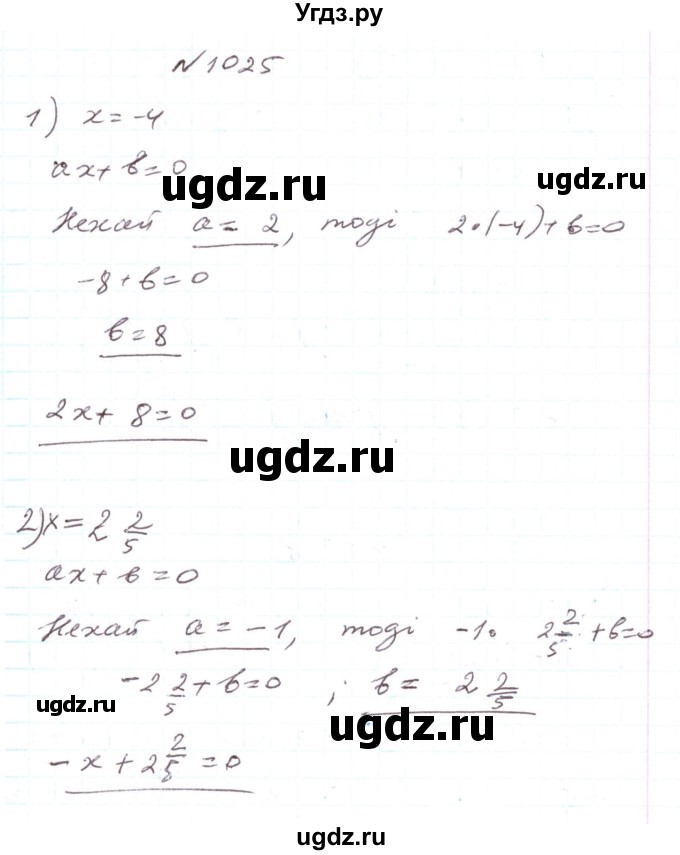 Угдз.ру
N 1025
1) x = -4
ax + b = 0
ugdz.ru
ugdz.ru
Нехай a = 2, тоді 2•(-4) + b = 0
-8 + b = 0
b = 8
2x + 8 = 0
ugdz.ru
2) x = 2 2/5
ax + b = 0
Нехай a = -1, тоді -1• 2 2/5 + b = 0
-2 2/5 + b = 0 ; b = 2 2/5
ugdz.ru
ugdz.ru
-x + 2 2/5 = 0
ugdz.ru